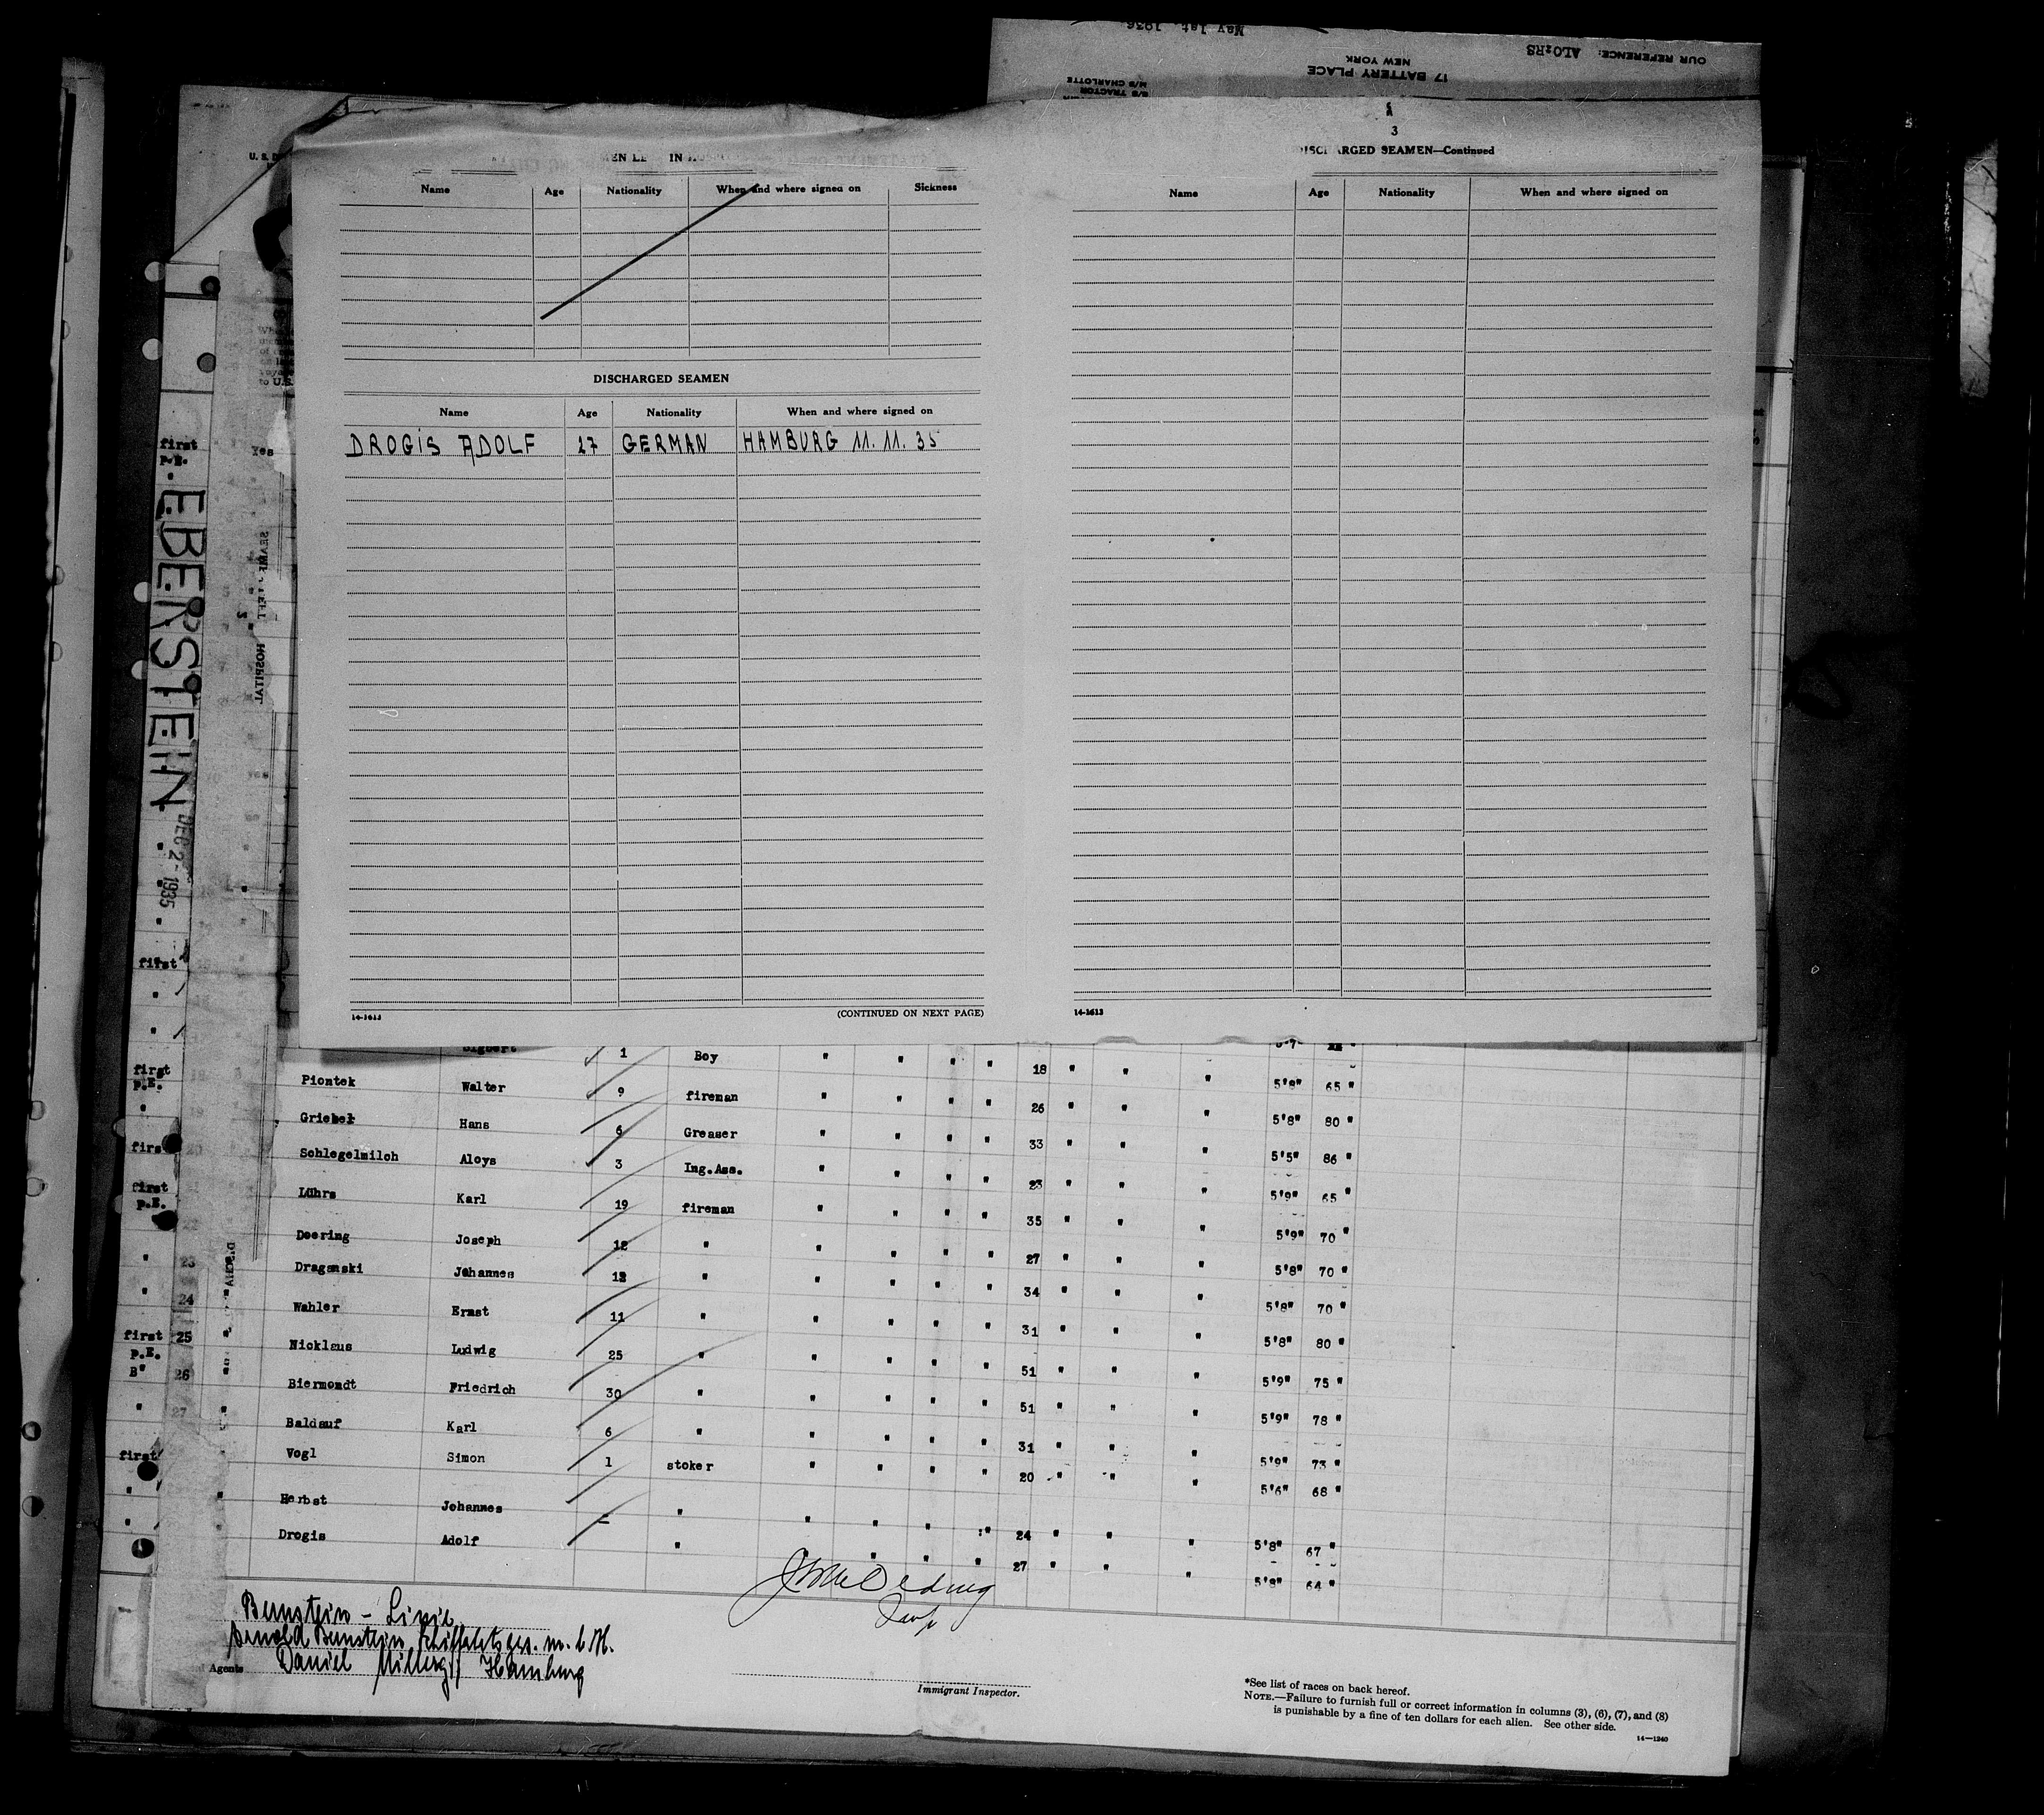 OUR REFERENCE: ALO:RS
May 1st, 1936
17 BATTERY PLACE
NEW YORK
S/S TRACTOR
M/S CHARLOTTE
3
DISCHARGED SEAMEN—Continued
Name Age Nationality When and where signed on Sickness
Name Age Nationality When and where signed on
DISCHARGED SEAMEN
Name Age Nationality When and where signed on
DROGIS ADOLF 27 GERMAN HAMBURG 11. 11. 35
(CONTINUED ON NEXT PAGE)
14-1613
14-1613
EBERSTEIN
DEC 2 - 1935
HOSPITAL
first
p.E.
Yes
first
first
p.E.
first
p.E.
first
p.E.
B"
first
23
24
25
26
27
1 Boy " " " " 18 " " " 5'8" 65 "
Piontek Walter 9 fireman " " " " 26 " " " 5'8" 80 "
Griebel Hans 6 Greaser " " " " 33 " " " 5'5" 86 "
Schlegelmilch Aloys 3 Ing.Ass. " " " " 23 " " " 5'9" 65 "
Lührs Karl 19 fireman " " " " 35 " " " 5'9" 70 "
Doering Joseph 12 " " " " " 27 " " " 5'8" 70 "
Draganski Johannes 12 " " " " " 34 " " " 5'8" 70 "
Wahler Ernst 11 " " " " " 31 " " " 5'8" 80 "
Nicklaus Ludwig 25 " " " " " 51 " " " 5'9" 75 "
Biermondt Friedrich 30 " " " " " 51 " " " 5'9" 78 "
Baldauf Karl 6 " " " " " 31 " " " 5'9" 73 "
Vogl Simon 1 stoker " " " " 20 " " " 5'6" 68 "
Herbst Johannes - " " " " " 24 " " " 5'8" 67 "
Drogis Adolf " " " " 27 " " " 5'8" 64 "
Bernstein - Linie
Arnold Bernstein Schiffahrtsges. m. b. H.
Hamburg
Agents
Immigrant Inspector.
*See list of races on back hereof.
NOTE.—Failure to furnish full or correct information in columns (3), (6), (7), and (8)
is punishable by a fine of ten dollars for each alien. See other side.
14—1240